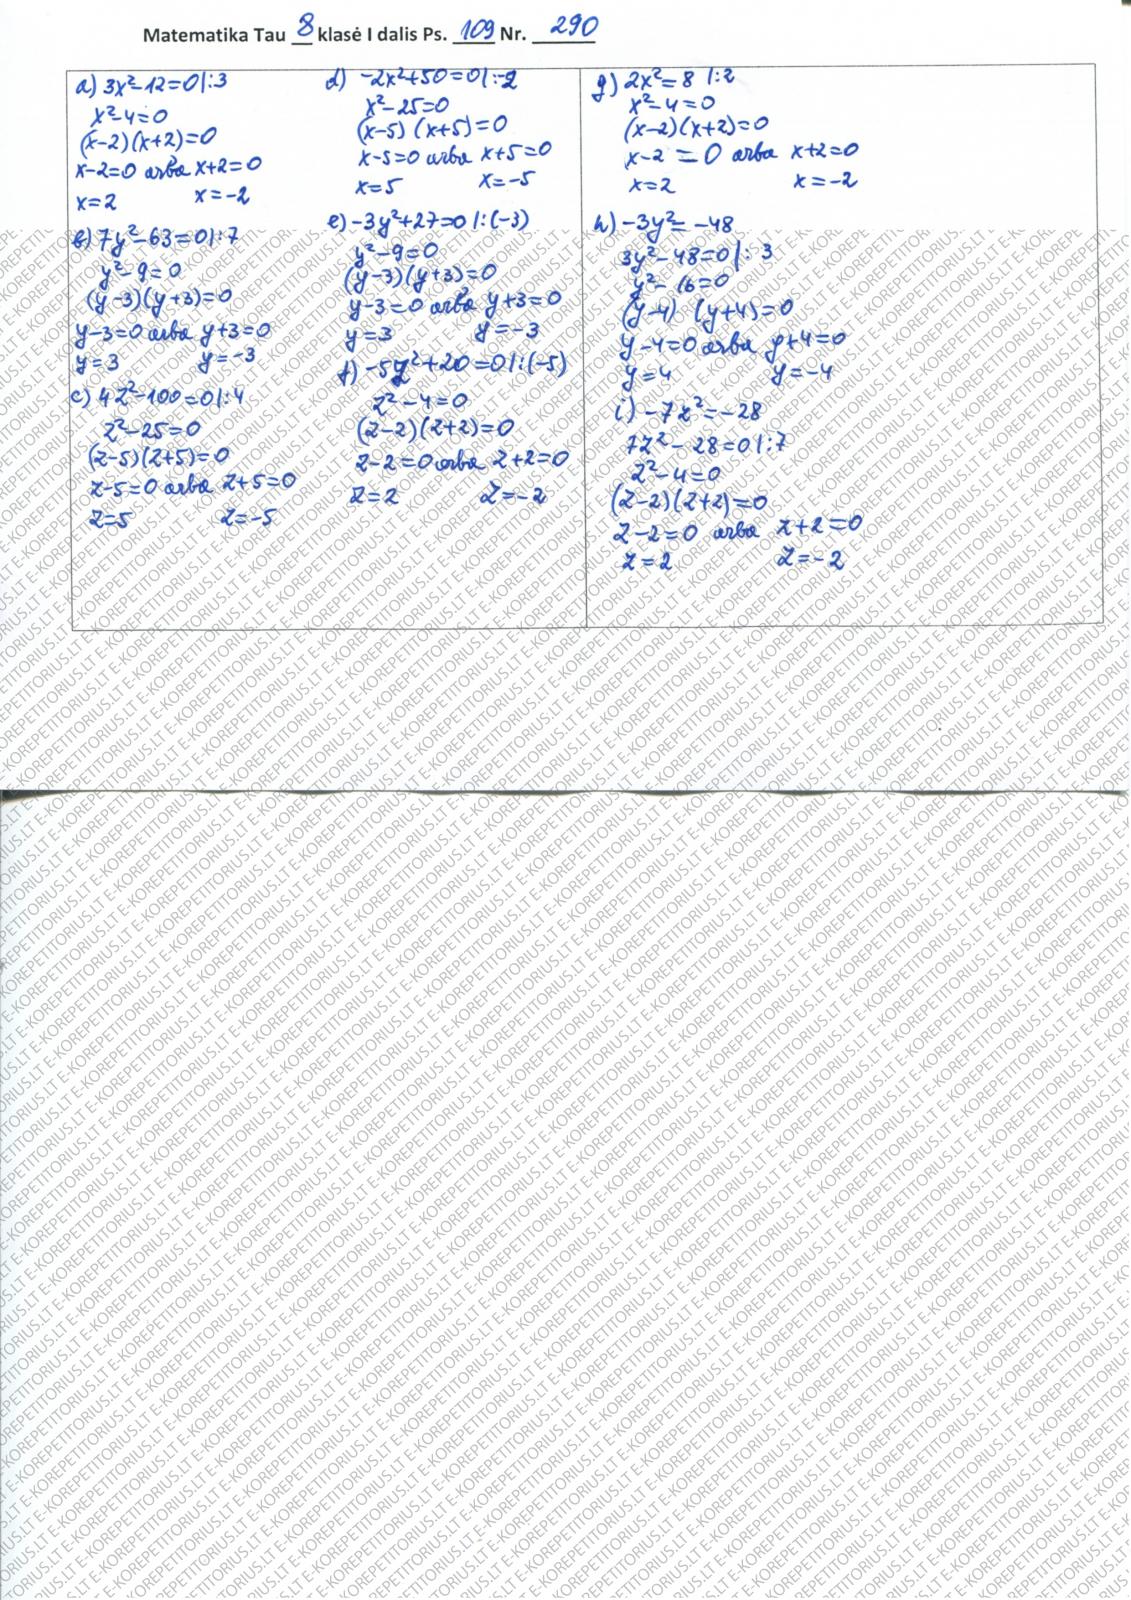 Matematika Tau 8 klasė I dalis Ps. 109 Nr. 290
a) 3x²-12=0 |:3
x²-4=0
(x-2)(x+2)=0
x-2=0 arba x+2=0
x=2 x=-2
b) 7y²-63=0 |:7
y²-9=0
(y-3)(y+3)=0
y-3=0 arba y+3=0
y=3 y=-3
c) 4z²-100=0 |:4
z²-25=0
(z-5)(z+5)=0
z-5=0 arba z+5=0
z=5 z=-5
d) -2x²+50=0 |:-2
x²-25=0
(x-5)(x+5)=0
x-5=0 arba x+5=0
x=5 x=-5
e) -3y²+27=0 |:(-3)
y²-9=0
(y-3)(y+3)=0
y-3=0 arba y+3=0
y=3 y=-3
f) -5z²+20=0 |:(-5)
z²-4=0
(z-2)(z+2)=0
z-2=0 arba z+2=0
z=2 z=-2
g) 2x²=8 |:2
x²-4=0
(x-2)(x+2)=0
x-2=0 arba x+2=0
x=2 x=-2
h) -3y²=-48
3y²-48=0 |:3
y²-16=0
(y-4)(y+4)=0
y-4=0 arba y+4=0
y=4 y=-4
i) -7z²=-28
7z²-28=0 |:7
z²-4=0
(z-2)(z+2)=0
z-2=0 arba z+2=0
z=2 z=-2
E-KOREPETITORIUS.LT